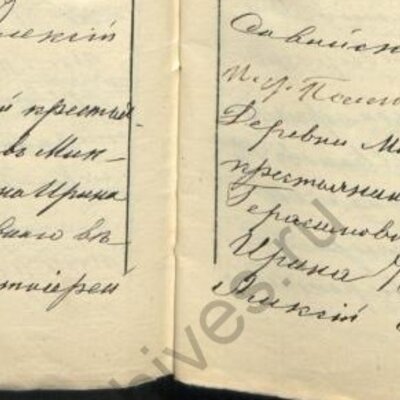 лексій
й крестья
въ Мин-
на Ирина
внаго въ
атоіерей
Савинск
Деревни М
крестьянин
Герасимов
Ирина
Алексій
archives.ru